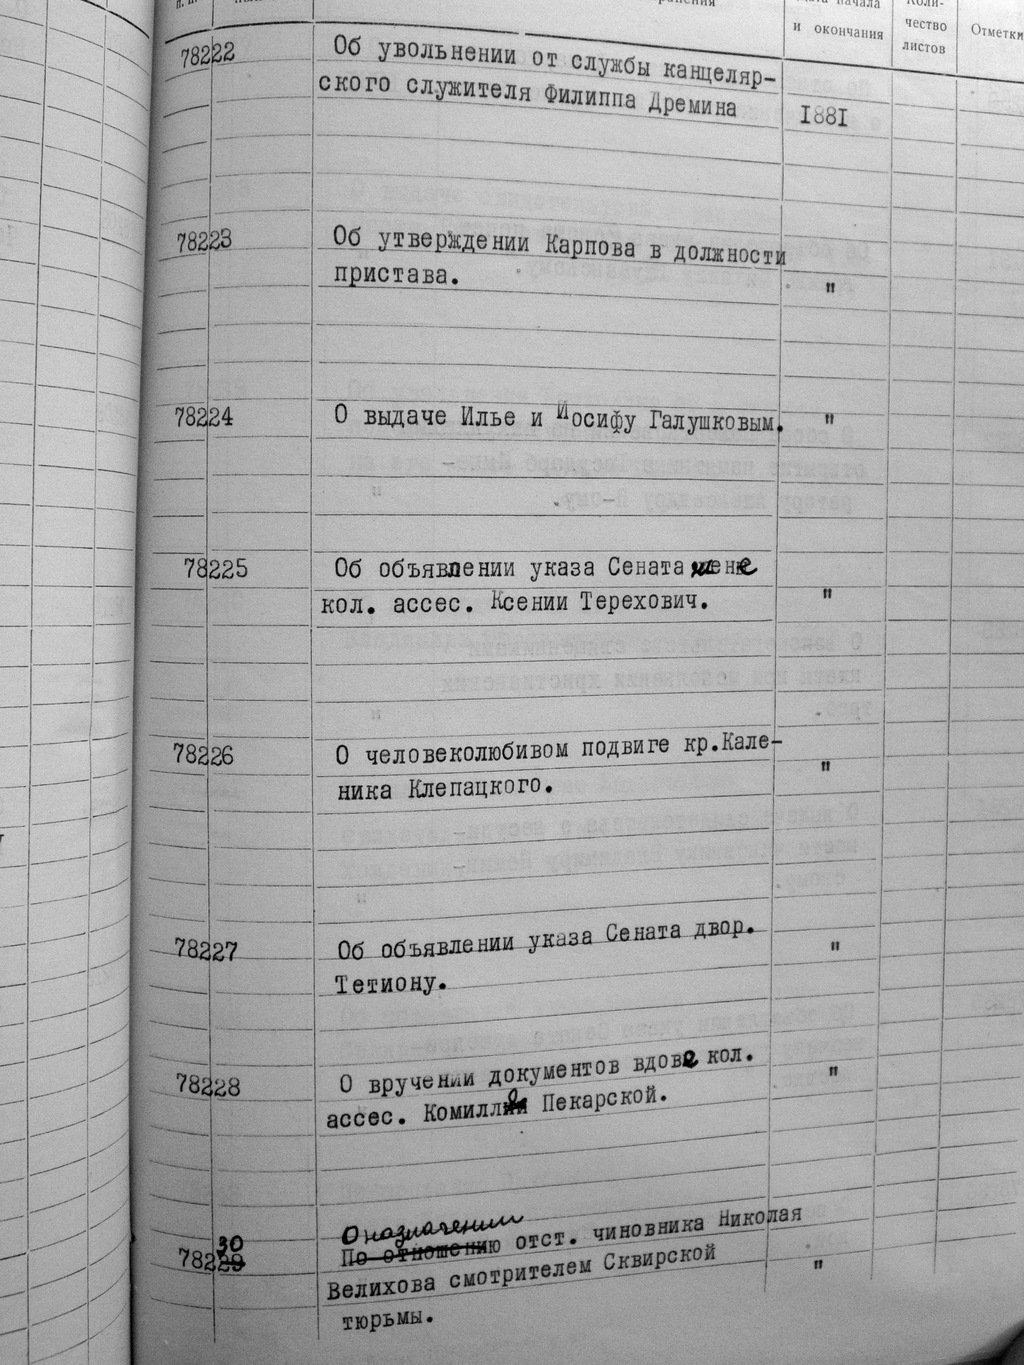 и окончания
чество
листов
Отметки
78222 Об увольнении от службы канцеляр-
ского служителя Филиппа Дремина 1881
78223 Об утверждении Карпова в должности
пристава. "
78224 О выдаче Илье и Иосифу Галушковым. "
78225 Об объявлении указа Сената жене
кол. ассес. Ксении Терехович. "
78226 О человеколюбивом подвиге кр.Кале-
ника Клепацкого. "
78227 Об объявлении указа Сената двор. "
Тетиону.
78228 О вручении документов вдове кол. "
ассес. Комилле Пекарской.
30
О назначении
78229 По отношению отст. чиновника Николая
Велихова смотрителем Сквирской "
тюрьмы.